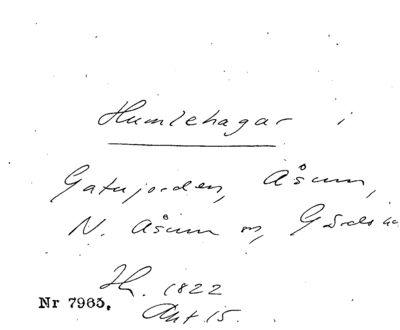 Humlehagar i
Gatujorden, Åsum,
N. Åsum sn, Gärds
Hh. 1822
Nr 7965.
Akt 15.